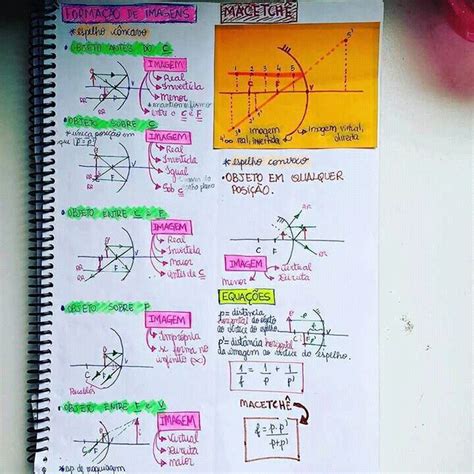 FORMAÇÃO DE IMAGENS
* espelho côncavo
• OBJETO ANTES DO C
IMAGEM
→ Real
→ Invertida
→ Menor
entre o C e F
C F V
• OBJETO SOBRE C
* única posição em
que p = p'
IMAGEM
→ Real
→ Invertida
→ Igual
→ Sob C
• OBJETO ENTRE C e F
IMAGEM
→ Real
→ Invertida
→ Maior
→ antes de C
• OBJETO SOBRE F
IMAGEM
→ Imprópria
→ se forma no
infinito (∞)
C F V
• OBJETO ENTRE F e V
IMAGEM
→ Virtual
→ Direita
→ maior
MACETCHÊ
1 2 3 4 5
C F
5'
imagem
real, invertida
→ imagem virtual,
direita
* espelho convexo
• OBJETO EM QUALQUER
POSIÇÃO.
IMAGEM
menor
→ Virtual
→ Direita
EQUAÇÕES
p = distância
horizontal do objeto
ao vértice do espelho
p' = distância horizontal
da imagem ao vértice do espelho.
1/f = 1/p + 1/p'
MACETCHÊ
f = p·p'/p+p'